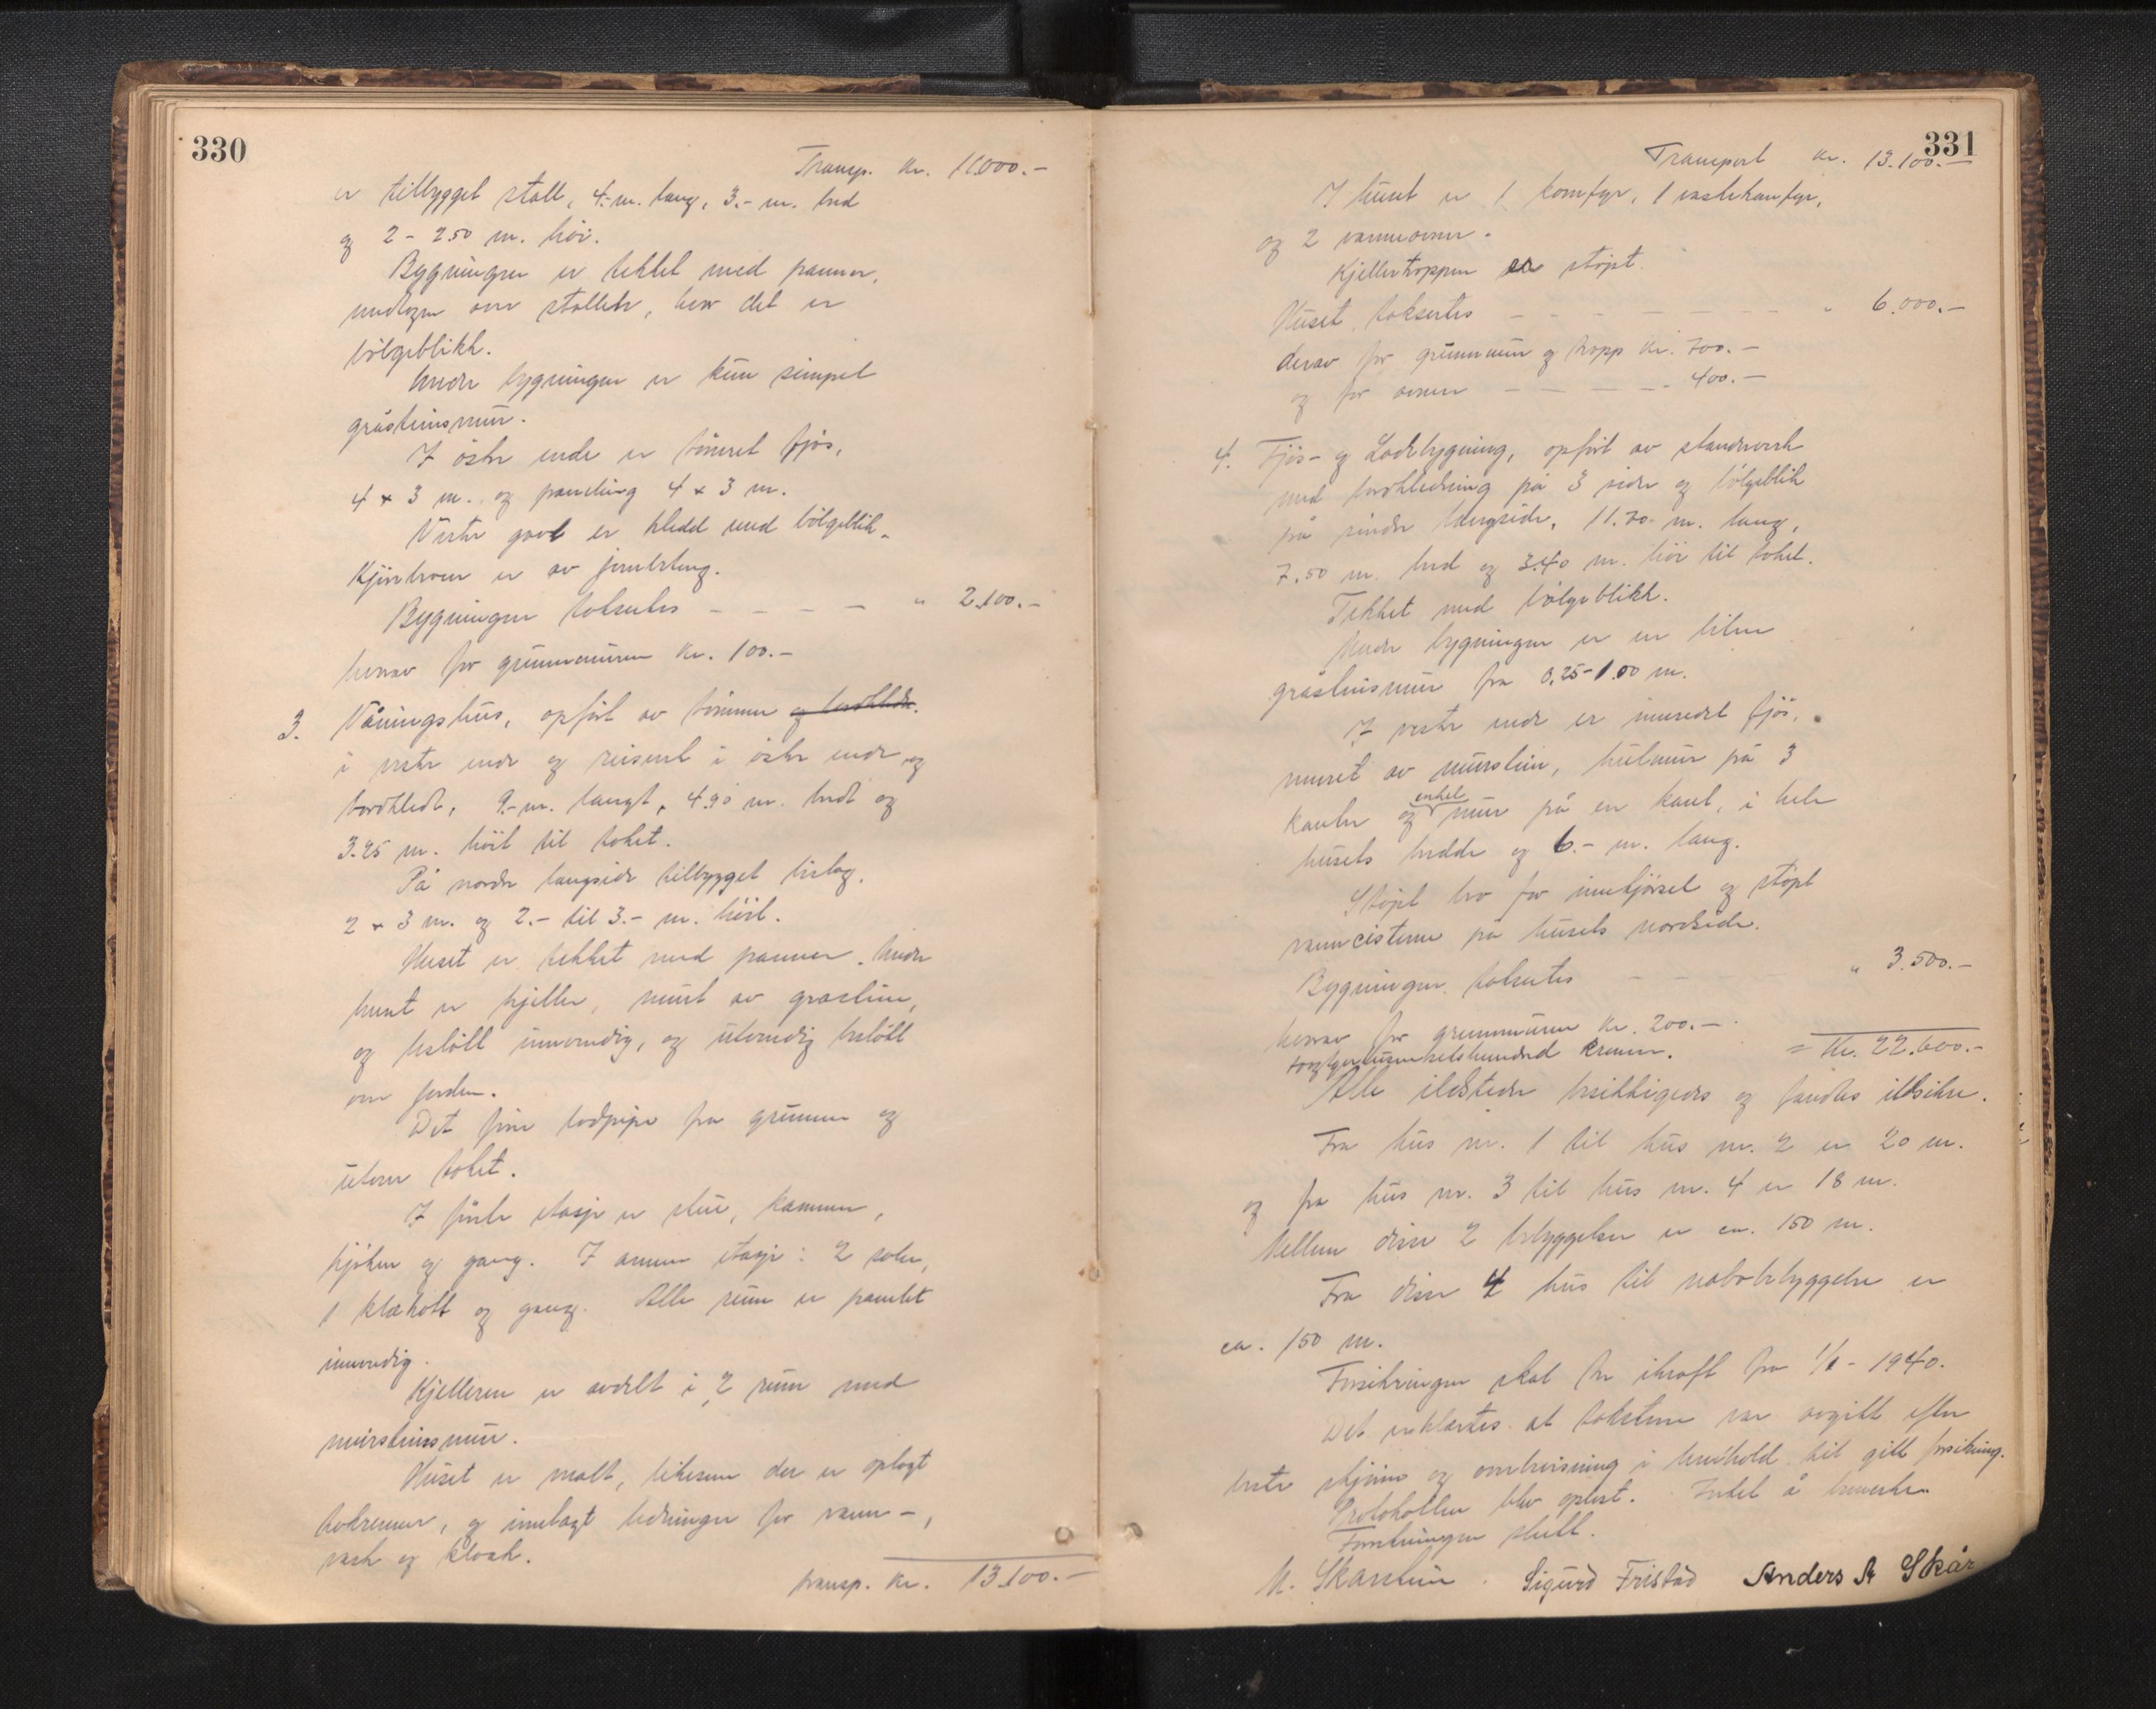 330
Transp. Kr. 11.000.-
er tilbygget stall, 4.- m. lang, 3.- m. bred
og 2 - 2.50 m. höi.
Bygningen er tekket med panner,
undtagen over stallen, hvor det er
bölgeblikk.
Under bygningen er kun simpel
gråsteinsmur.
I östre ende er tömret fjös,
4 x 3 m. og 4 x 3 m.
Vestre gavl er kledd med bölgeblik.
Kjörebroen er av
Bygningen takseres - - - - " 2.100.-
herav for grunnmuren Kr. 100.-
3. Våningshus, opfört av tömmer og bordkledn.
i vestre ende og reisverk i östre ende og
bordkledt, 9.- m. langt, 4.90 m. bredt og
3.25 m. höit til taket.
På nordre langside tilbygget bislag,
2 x 3 m. og 2.- til 3.- m. höit.
Huset er tekket med panner. Under
huset er kjeller, muret av gråstein,
og beslått innvendig, og utvendig beslått
over jorden.
Det fins pipe fra grunnen og
utover taket.
I förste etasje er stue, kammer,
kjöken og gang. I annen etasje: 2 saler,
1 klækott og gang. Alle rum er panelt
innvendig.
Kjelleren er avdelt i 2 rum med
murstensmur.
Huset er malt, likesom der er oplagt
takrenner, og innlagt ledninger for vann-,
vask og kloak.
transp. Kr. 13.100.-
331
Transport Kr. 13.100.-
I huset er 1 komfyr, 1 vaskekomfyr,
og 2 varmeovner.
Kjellertrappen er stöpt.
Huset takseres - - - - - - - " 6.000.-
derav for grunnmur og trapp Kr. 700.-
og for ovner - - - - - 400.-
4. Fjös- og Lödebygning, opfört av standverk
med bordkledning på 3 sider og bölgeblik
på söndre langside, 11.70 m. lang,
7.50 m. bred og 3.40 m. höi til taket.
Tekket med bölgeblikk.
Under bygningen er en liten
gråsteinsmur fra 0.25-1.00 m.
I vestre ende er innredet fjös,
muret av murstein, hulmur på 3
kanter og enkel mur på en kant, i hele
husets bredde og 6.- m. lang.
Stöpt bro for innkjörsel og stöpt
vanncisterne på husets nordside.
Bygningen takseres - - - " 3.500.-
herav for grunnmuren Kr. 200.-
= Kr. 22.600.-
totyvetusensekshundred kroner.
Alle ildsteder besiktigedes og fandtes ildsikre.
Fra hus nr. 1 til hus nr. 2 er 20 m.
og fra hus nr. 3 til hus nr. 4 er 18 m.
Mellem disse 2 bebyggelser er ca. 150 m.
Fra disse 4 hus til nabobebyggelse er
ca. 150 m.
Forsikringen skal tre ikraft fra 1/1 - 1940.
Det erklærtes at taksten var avgitt efter
beste skjönn og overbevisning i henhold til gitt forsikring.
Protokollen blev oplest. Intet å bemerke.
Forretningen slutt.
M. Skarstein. Sigurd Fristad Anders A Skår